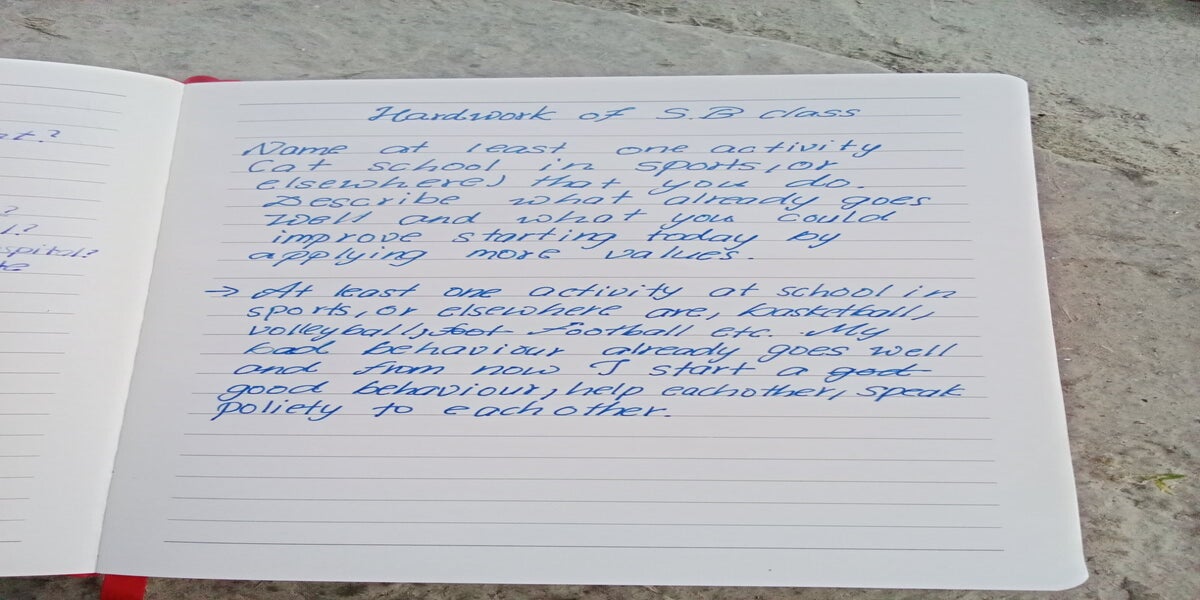 Hardwork of S.B class
Name at least one activity
(at school in sports, or
elsewhere) that you do.
Describe what already goes
well and what you could
improve starting today by
applying more values.
→ At least one activity at school in
sports, or elsewhere are, basketball,
volleyball, foot Football etc. My
bad behaviour already goes well
and from now I start a god
good behaviour, help eachother, speak
poliety to each other.
?
?
spital?